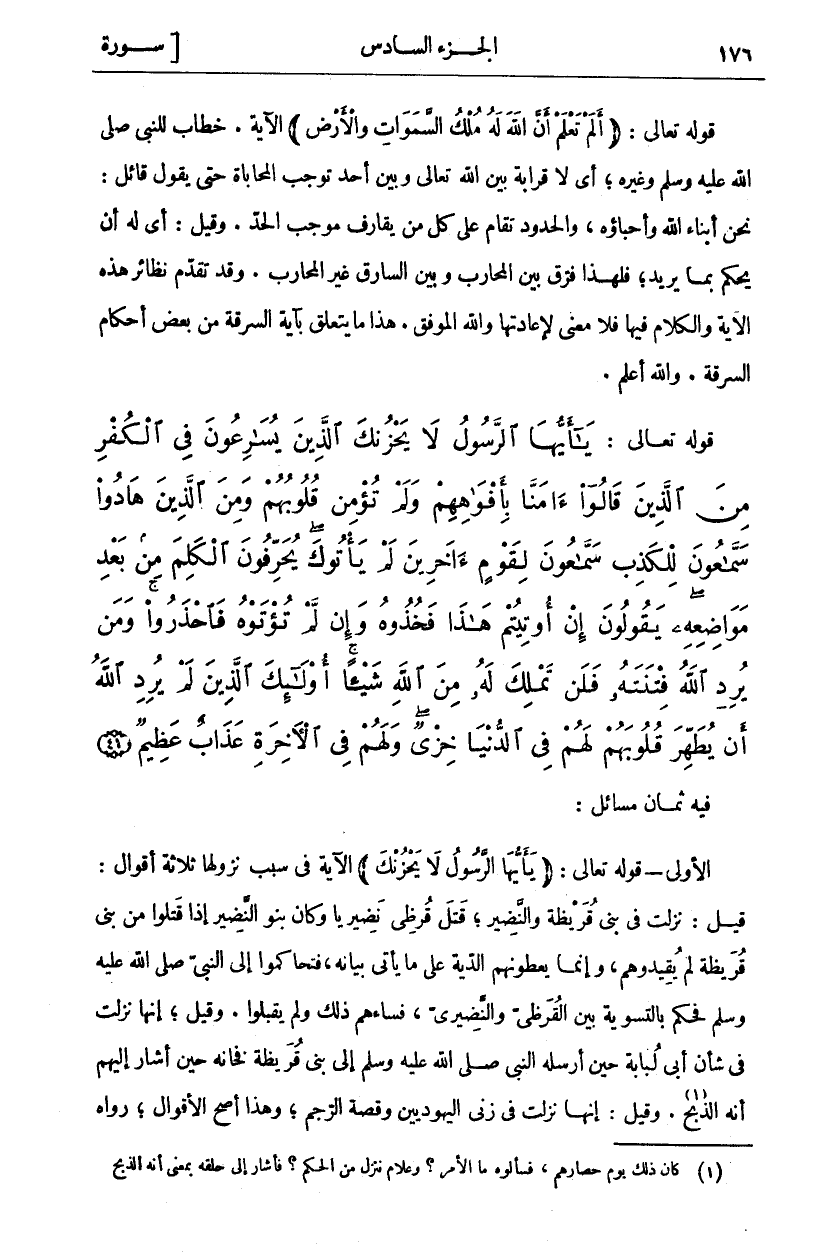 ١٧٦ الجزء السادس [ سورة
قوله تعالى : ﴿ أَلَمْ تَعْلَمْ أَنَّ اللَّهَ لَهُ مُلْكُ السَّمَوَاتِ والْأَرْضِ ﴾ الآية . خطاب للنبى صلى
الله عليه وسلم وغيره ؛ أى لا قرابة بين الله تعالى وبين أحد توجب المحاباة حتى يقول قائل :
نحن أبناء الله وأحباؤه ، والحدود تقام على كل من يقارف موجب الحدّ . وقيل : أى له أن
يحكم بما يريد؛ فلهذا فرّق بين المحارب وبين السارق غير المحارب . وقد تقدّم نظائر هذه
الآية والكلام فيها فلا معنى لإعادتها والله الموفق . هذا ما يتعلق بآية السرقة من بعض أحكام
السرقة . والله أعلم .
قوله تعالى : يَـٰٓأَيُّهَا ٱلرَّسُولُ لَا يَحْزُنكَ ٱلَّذِينَ يُسَـٰرِعُونَ فِى ٱلْكُفْرِ
مِنَ ٱلَّذِينَ قَالُوٓا۟ ءَامَنَّا بِأَفْوَٰهِهِمْ وَلَمْ تُؤْمِن قُلُوبُهُمْ وَمِنَ ٱلَّذِينَ هَادُوا۟
سَمَّـٰعُونَ لِلْكَذِبِ سَمَّـٰعُونَ لِقَوْمٍ ءَاخَرِينَ لَمْ يَأْتُوكَ ۖ يُحَرِّفُونَ ٱلْكَلِمَ مِنۢ بَعْدِ
مَوَاضِعِهِۦ ۖ يَقُولُونَ إِنْ أُوتِيتُمْ هَـٰذَا فَخُذُوهُ وَإِن لَّمْ تُؤْتَوْهُ فَٱحْذَرُوا۟ ۚ وَمَن
يُرِدِ ٱللَّهُ فِتْنَتَهُۥ فَلَن تَمْلِكَ لَهُۥ مِنَ ٱللَّهِ شَيْـًٔا ۚ أُو۟لَـٰٓئِكَ ٱلَّذِينَ لَمْ يُرِدِ ٱللَّهُ
أَن يُطَهِّرَ قُلُوبَهُمْ لَهُمْ فِى ٱلدُّنْيَا خِزْىٌ ۖ وَلَهُمْ فِى ٱلْـَٔاخِرَةِ عَذَابٌ عَظِيمٌ ﴿٤١﴾
فيه ثمان مسائل :
الأولى — قوله تعالى : ﴿ يَأَيُّهَا الرَّسُولُ لَا يَحْزُنْكَ ﴾ الآية فى سبب نزولها ثلاثة أقوال :
قيل : نزلت فى بنى قُرَيظة والنَّضير ؛ قَتَلَ قُرظِى نَضِيريا وكان بنو النَّضير إذا قَتلوا من بنى
قُرَيظة لم يُقِيدوهم، وإنما يعطونهم الدّية على ما يأتى بيانه، فتحاكموا إلى النبىّ صلى الله عليه
وسلم فحكم بالتسوية بين القُرَظىّ والنَّضِيرىّ ، فساءهم ذلك ولم يقبلوا . وقيل ؛ إنها نزلت
فى شأن أبى لُبابة حين أرسله النبى صلى الله عليه وسلم إلى بنى قُرَيظة فخانه حين أشار إليهم
أنه الذَّبح (١) . وقيل : إنها نزلت فى زنى اليهوديين وقصة الرّجم ؛ وهذا أصح الأقوال ؛ رواه
(١) كان ذلك يوم حصارهم ، فسألوه ما الأمر ؟ وعلام ننزل من الحكم ؟ فأشار إلى حلقه بمعنى أنه الذبح